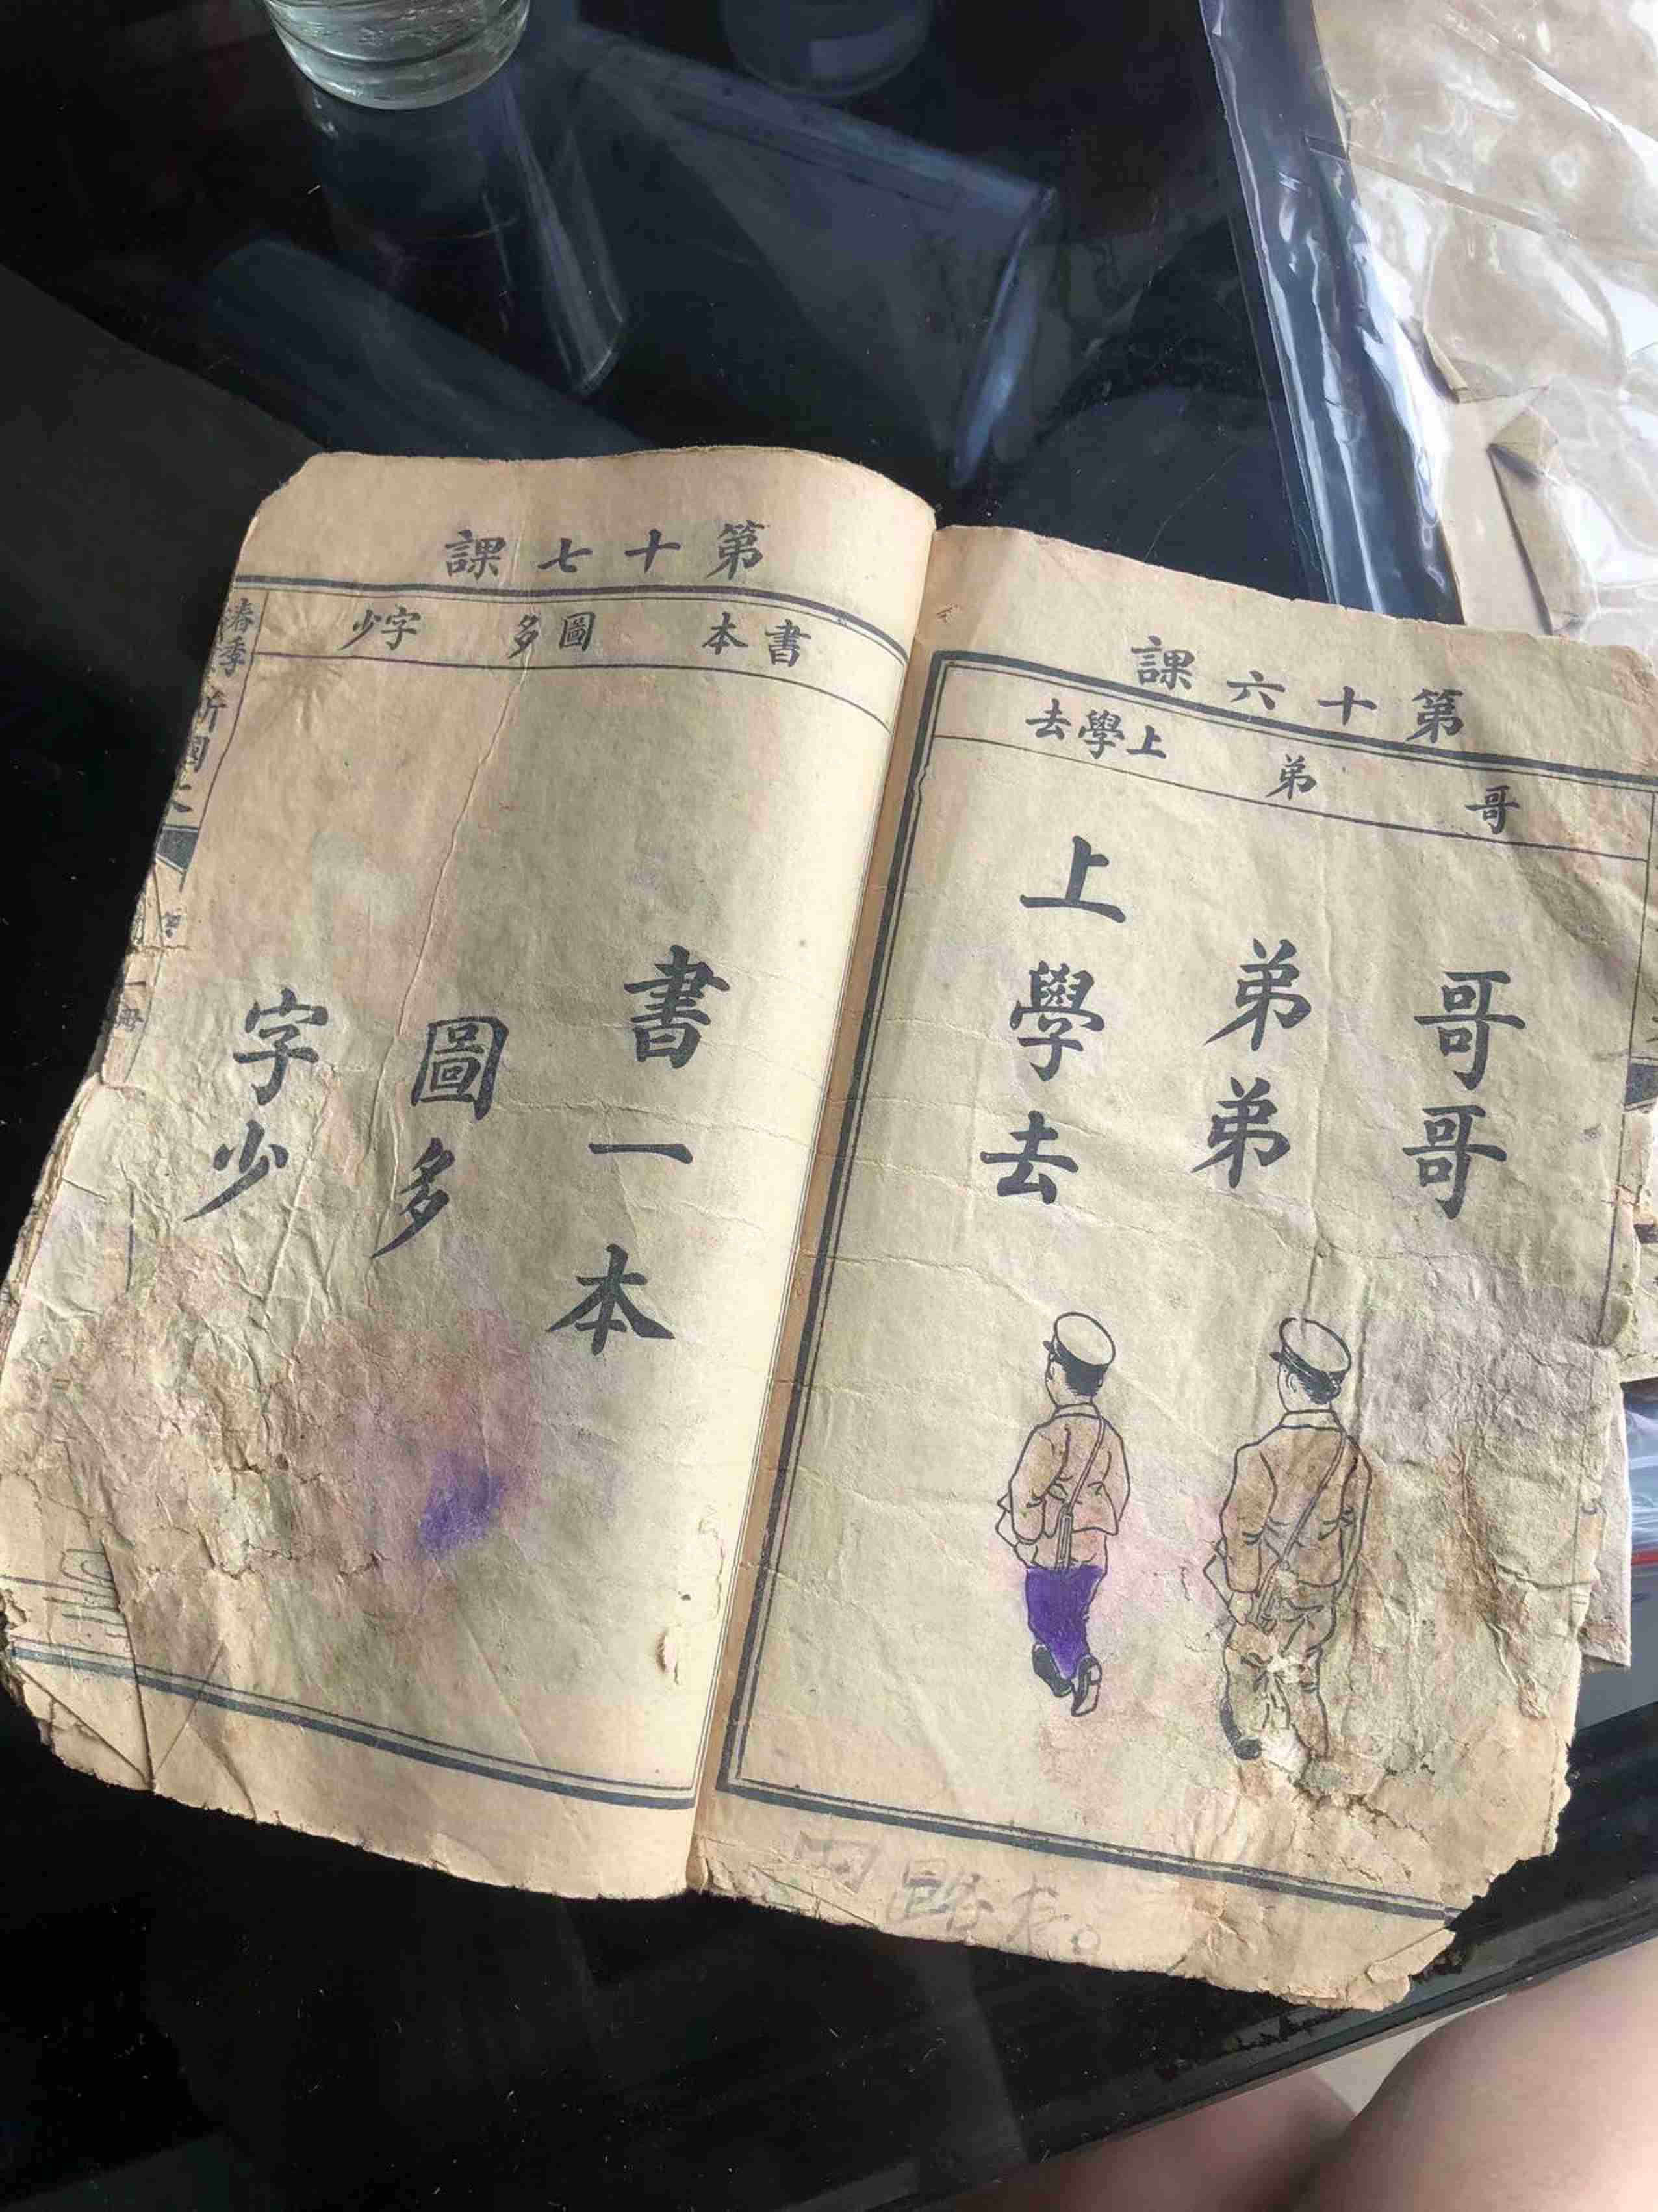 第十六課
哥 弟 上學去
哥哥
弟弟
上學去
第十七課
書本 圖多 字少
書一本
圖多
字少
春季
新國文
第一冊